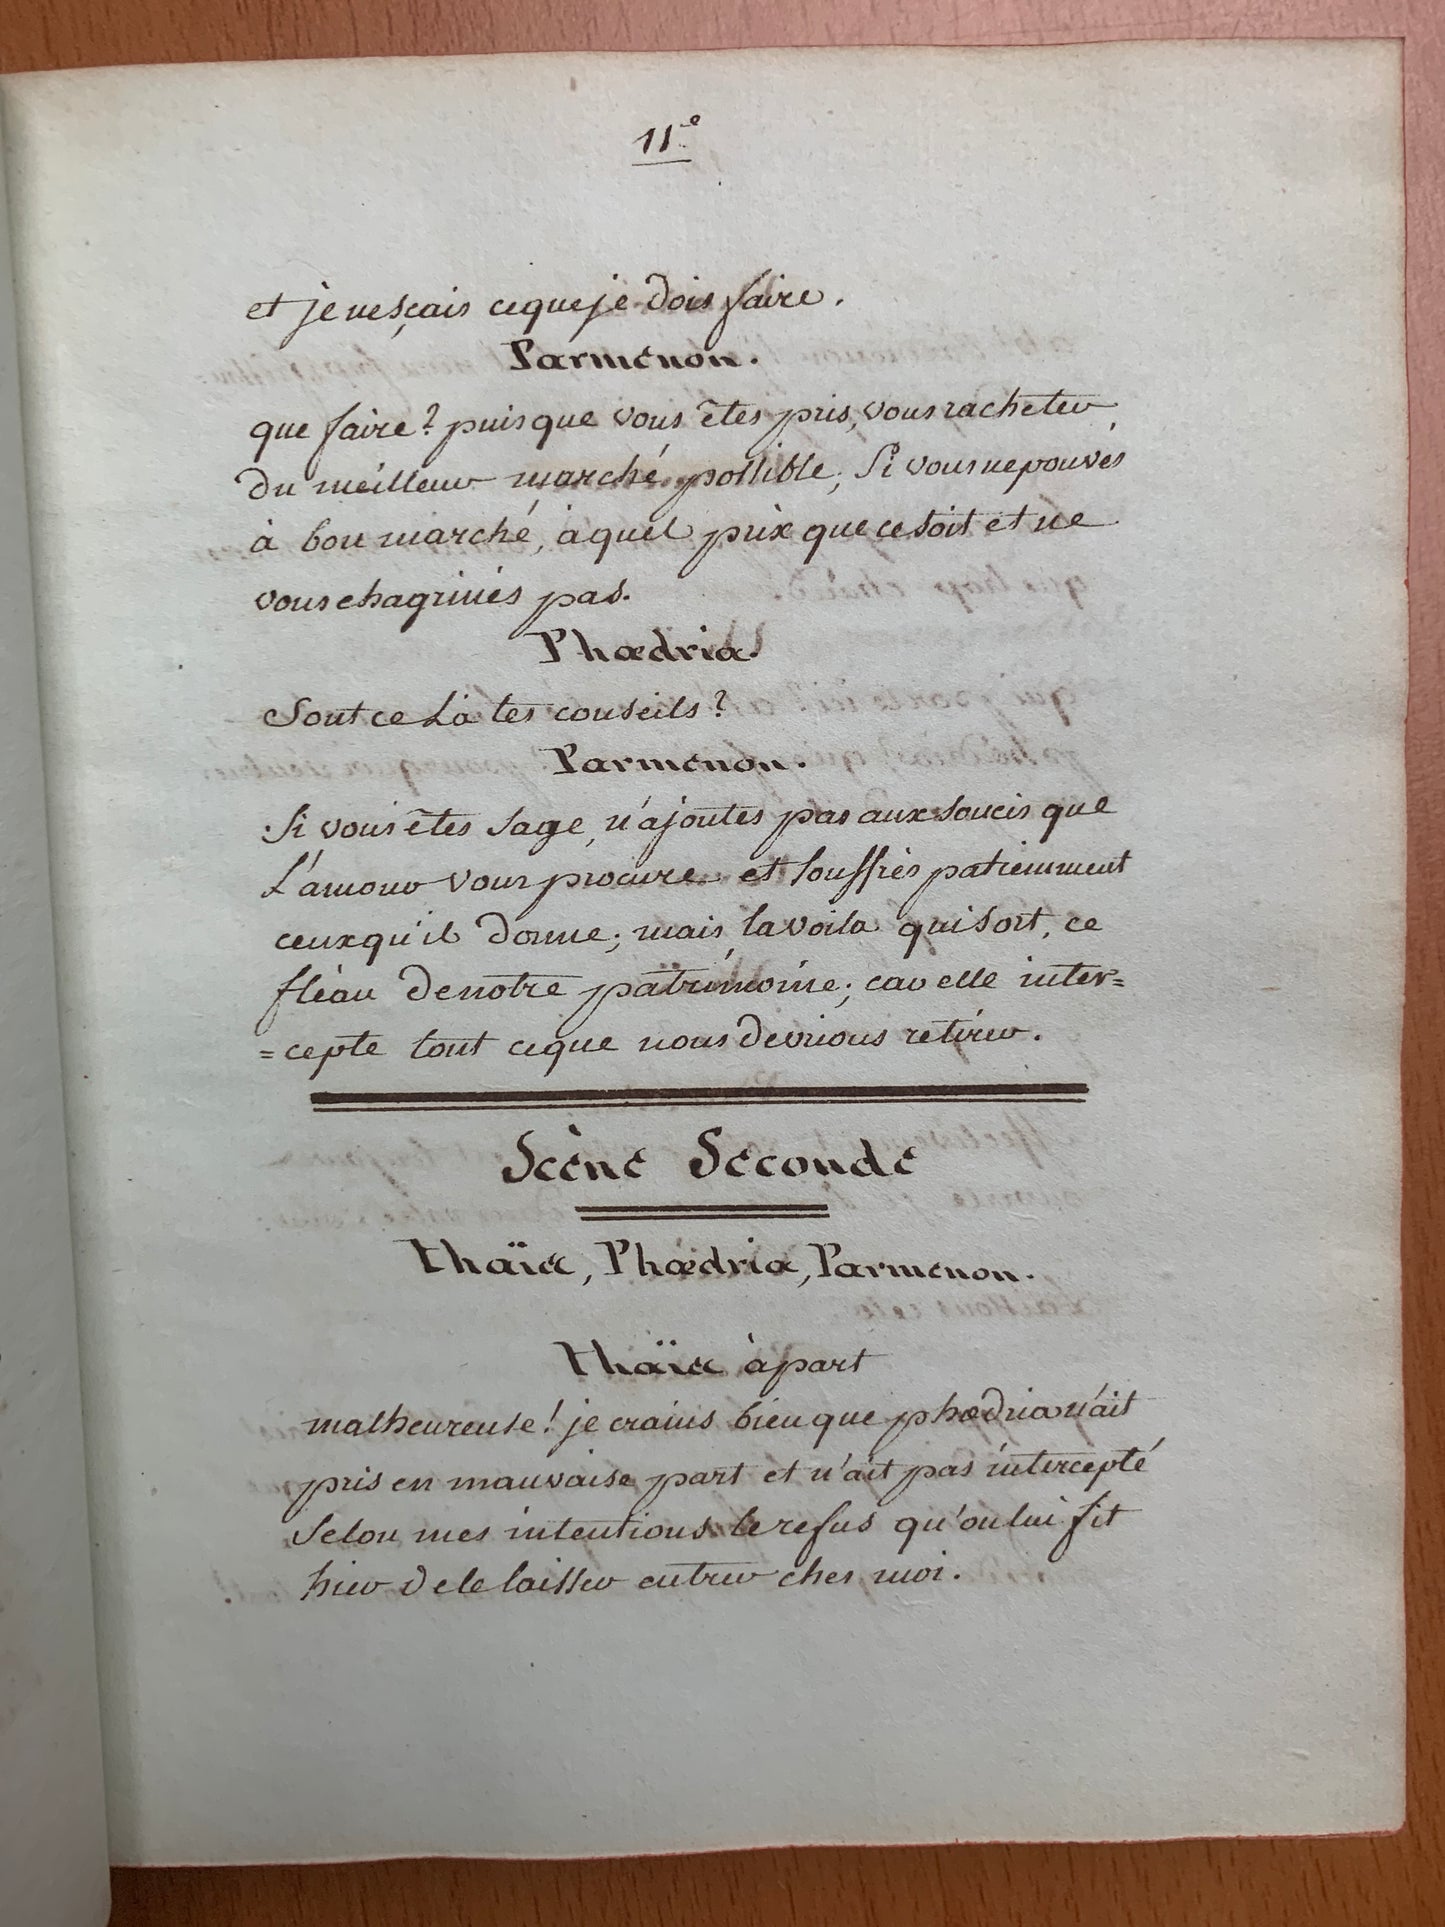 11.e
et je ne sçais ce que je dois faire.
Parménon.
que faire? puisque vous êtes pris, vous racheter
du meilleur marché possible, Si vous ne pouvés
à bon marché, à quel prix que ce soit et ne
vous chagrinés pas.
Phœdria.
Sont ce Là tes conseils?
Parménon.
Si vous êtes sage, n'ajoutés pas aux soucis que
L'amour vous procure et souffrés patiemment
ceux qu'il donne; mais la voila qui sort, ce
fléau de notre patrimoine; car elle inter=
=cepte tout ce que nous devrions retirer.
Scène Seconde
thaïs, Phœdria, Parmenon.
thaïs à part
malheureuse! je crains bien que phœdria n'ait
pris en mauvaise part et n'ait pas intercepté
Selon mes intentions le refus qu'on lui fit
hier de le laisser entrer chés moi.